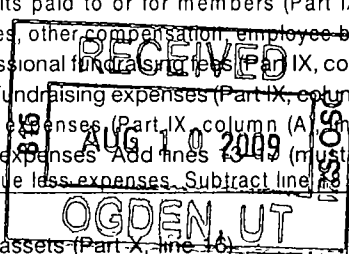 its paid to or for members (Part IX
es, other compensation, employee b
ssional fundraising fees (Part IX, co
undraising expenses (Part IX, colum
expenses (Part IX, column (A),
expenses Add lines 13-19 (must
ue less expenses Subtract line
assets (Part X, line 16)
RECEIVED
AUG 10 2009
OGDEN, UT
IRS-OSC